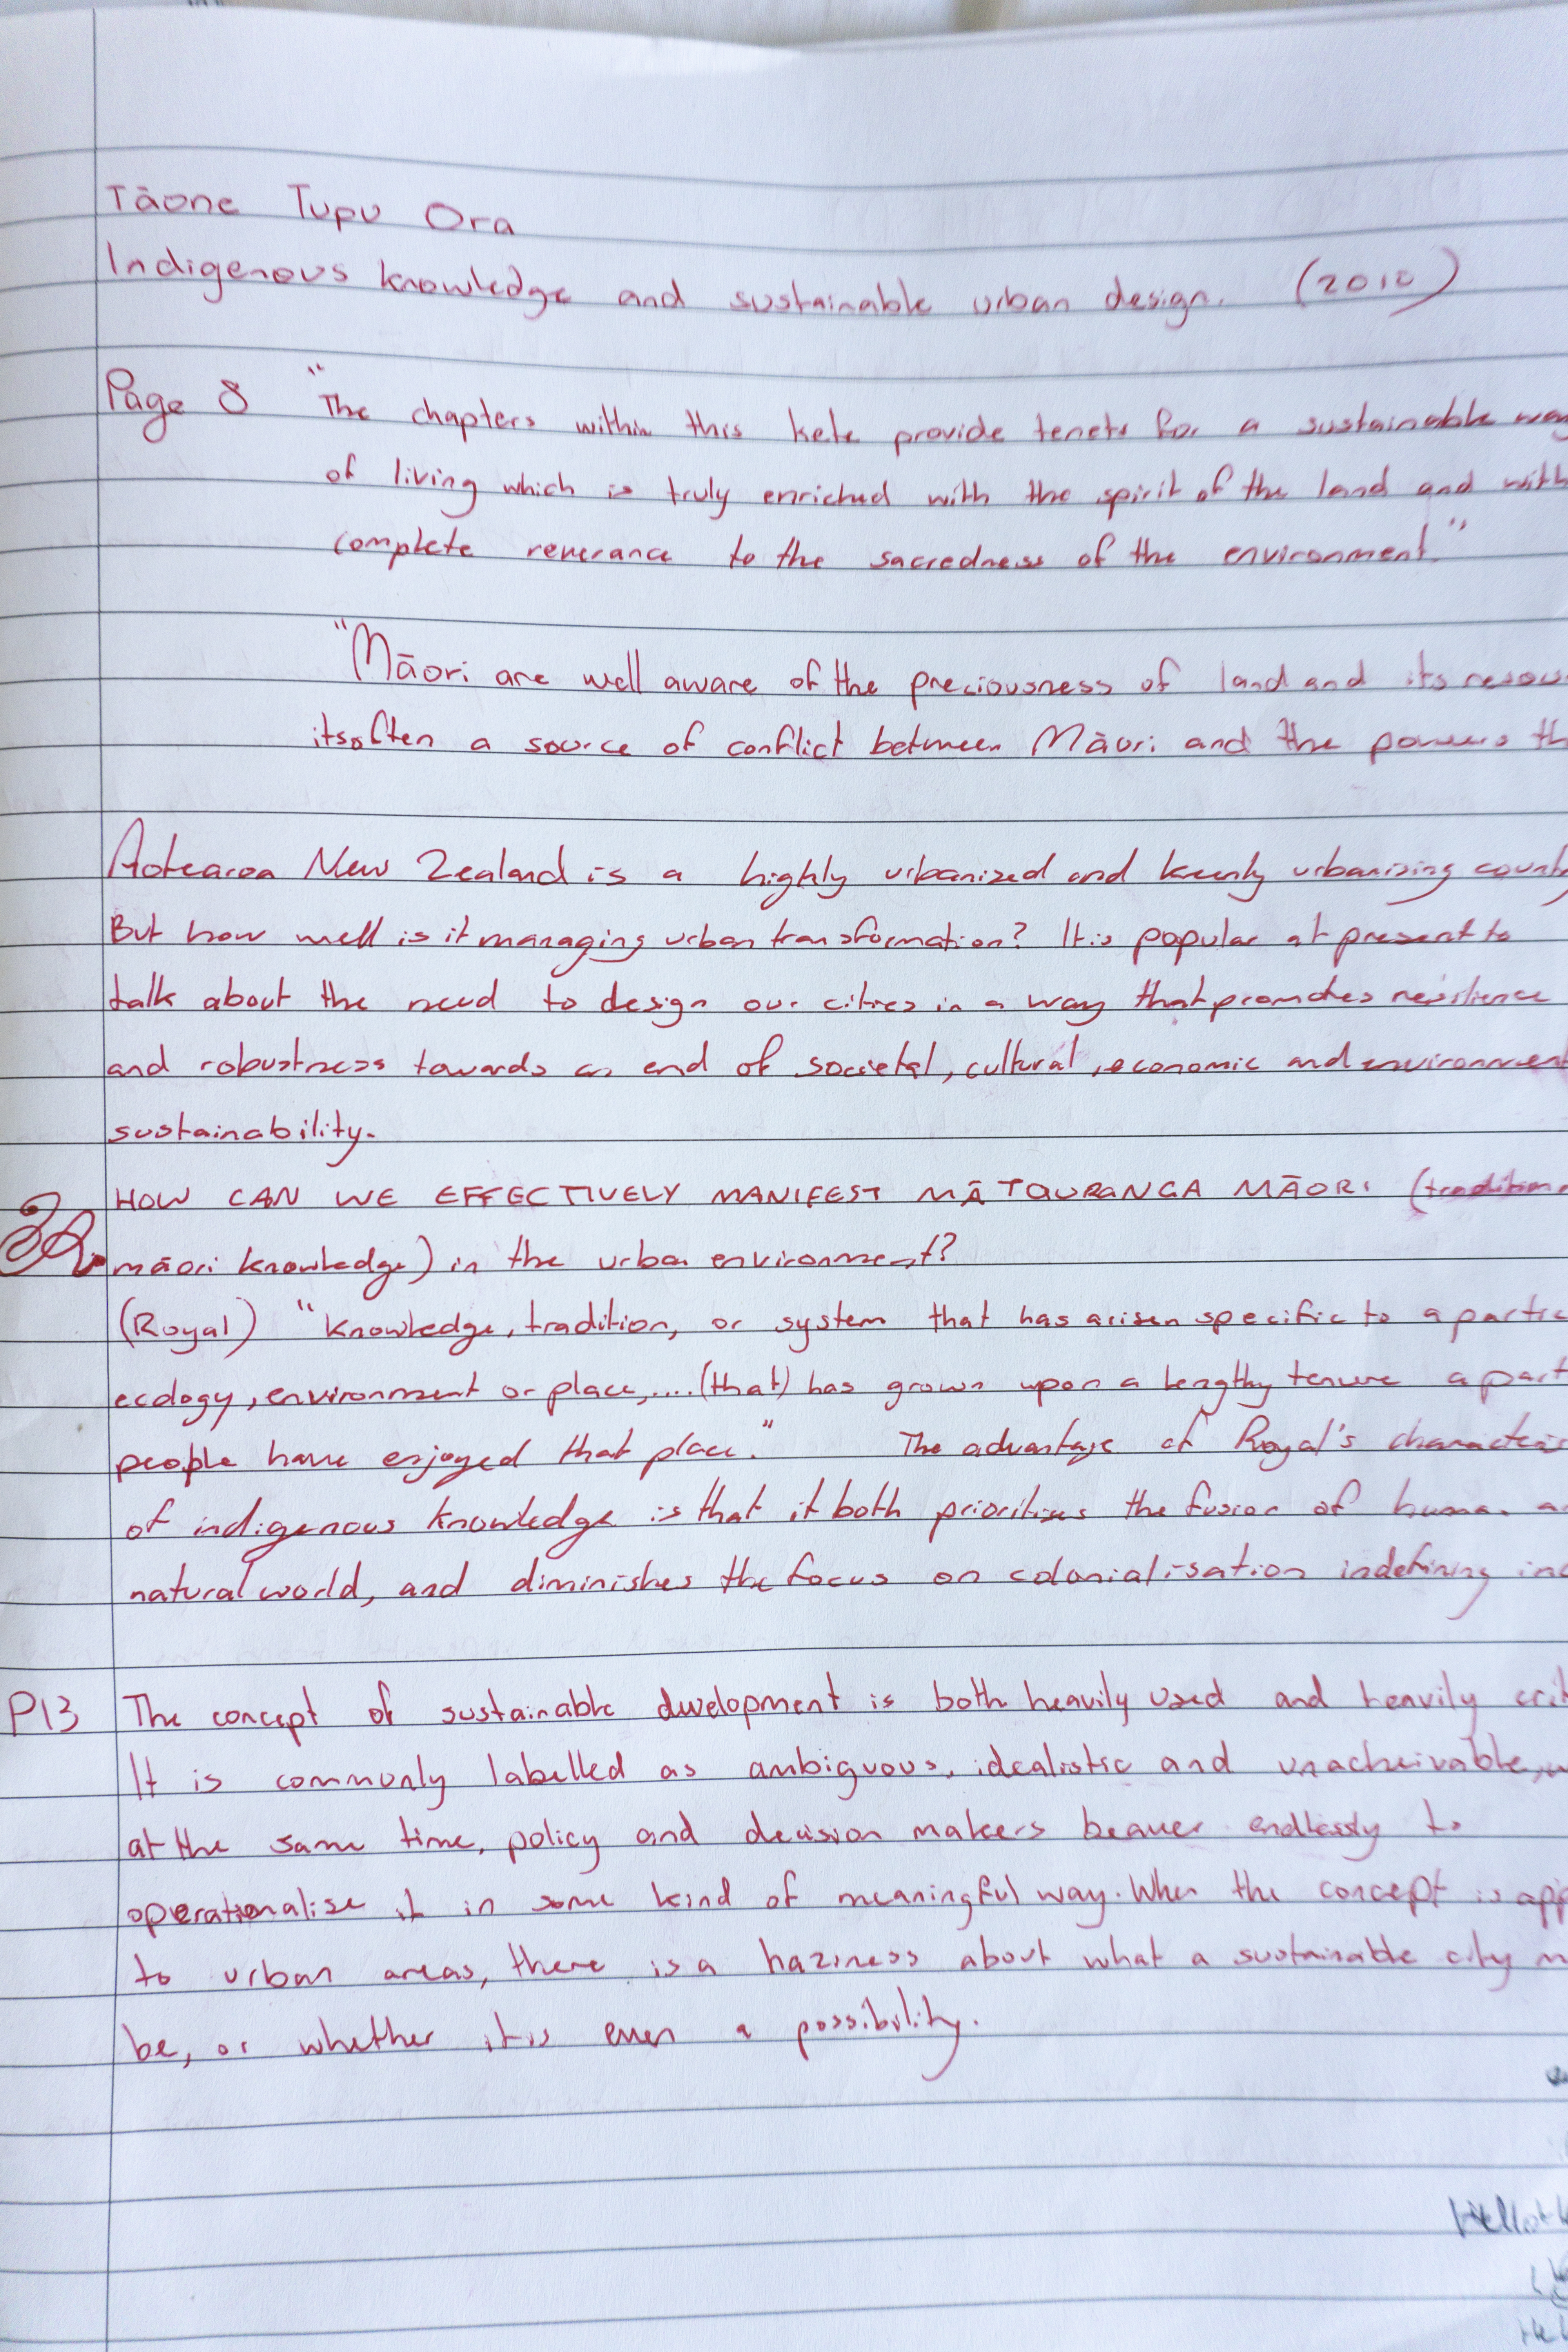 Tāone Tupu Ora
Indigenous knowledge and sustainable urban design. (2010)
Page 8 "The chapters within this kete provide tenets for a sustainable way
of living which is truly enriched with the spirit of the land and with
complete reverance to the sacredness of the environment."
"Māori are well aware of the preciousness of land and its
its often a source of conflict between Māori and the powers
Aotearoa New Zealand is a highly urbanized and keenly urbanizing
But how well is it managing urban transformation? It is popular at present to
talk about the need to design our cities in a way that promotes resilience
and robustness towards an end of societal, cultural, economic and
sustainability.
HOW CAN WE EFFECTIVELY MANIFEST MĀTAURANGA MĀORI
māori knowledge) in the urban environment?
(Royal) "Knowledge, tradition, or system that has arisen specific to a
ecology, environment or place,....(that) has grown upon a lengthy tenure a
people have enjoyed that place." The advantage of Royal's
of indigenous knowledge is that it both prioritises the fusion of human
natural world, and diminishes the focus on colonialisation in defining
P13 The concept of sustainable development is both heavily used and heavily
It is commonly labelled as ambiguous, idealistic and unacheivable,
at the same time, policy and decision makers beaver endlessly to
operationalise it in some kind of meaningful way. When the concept is
to urban areas, there is a haziness about what a sustainable city
be, or whether it is even a possibility.